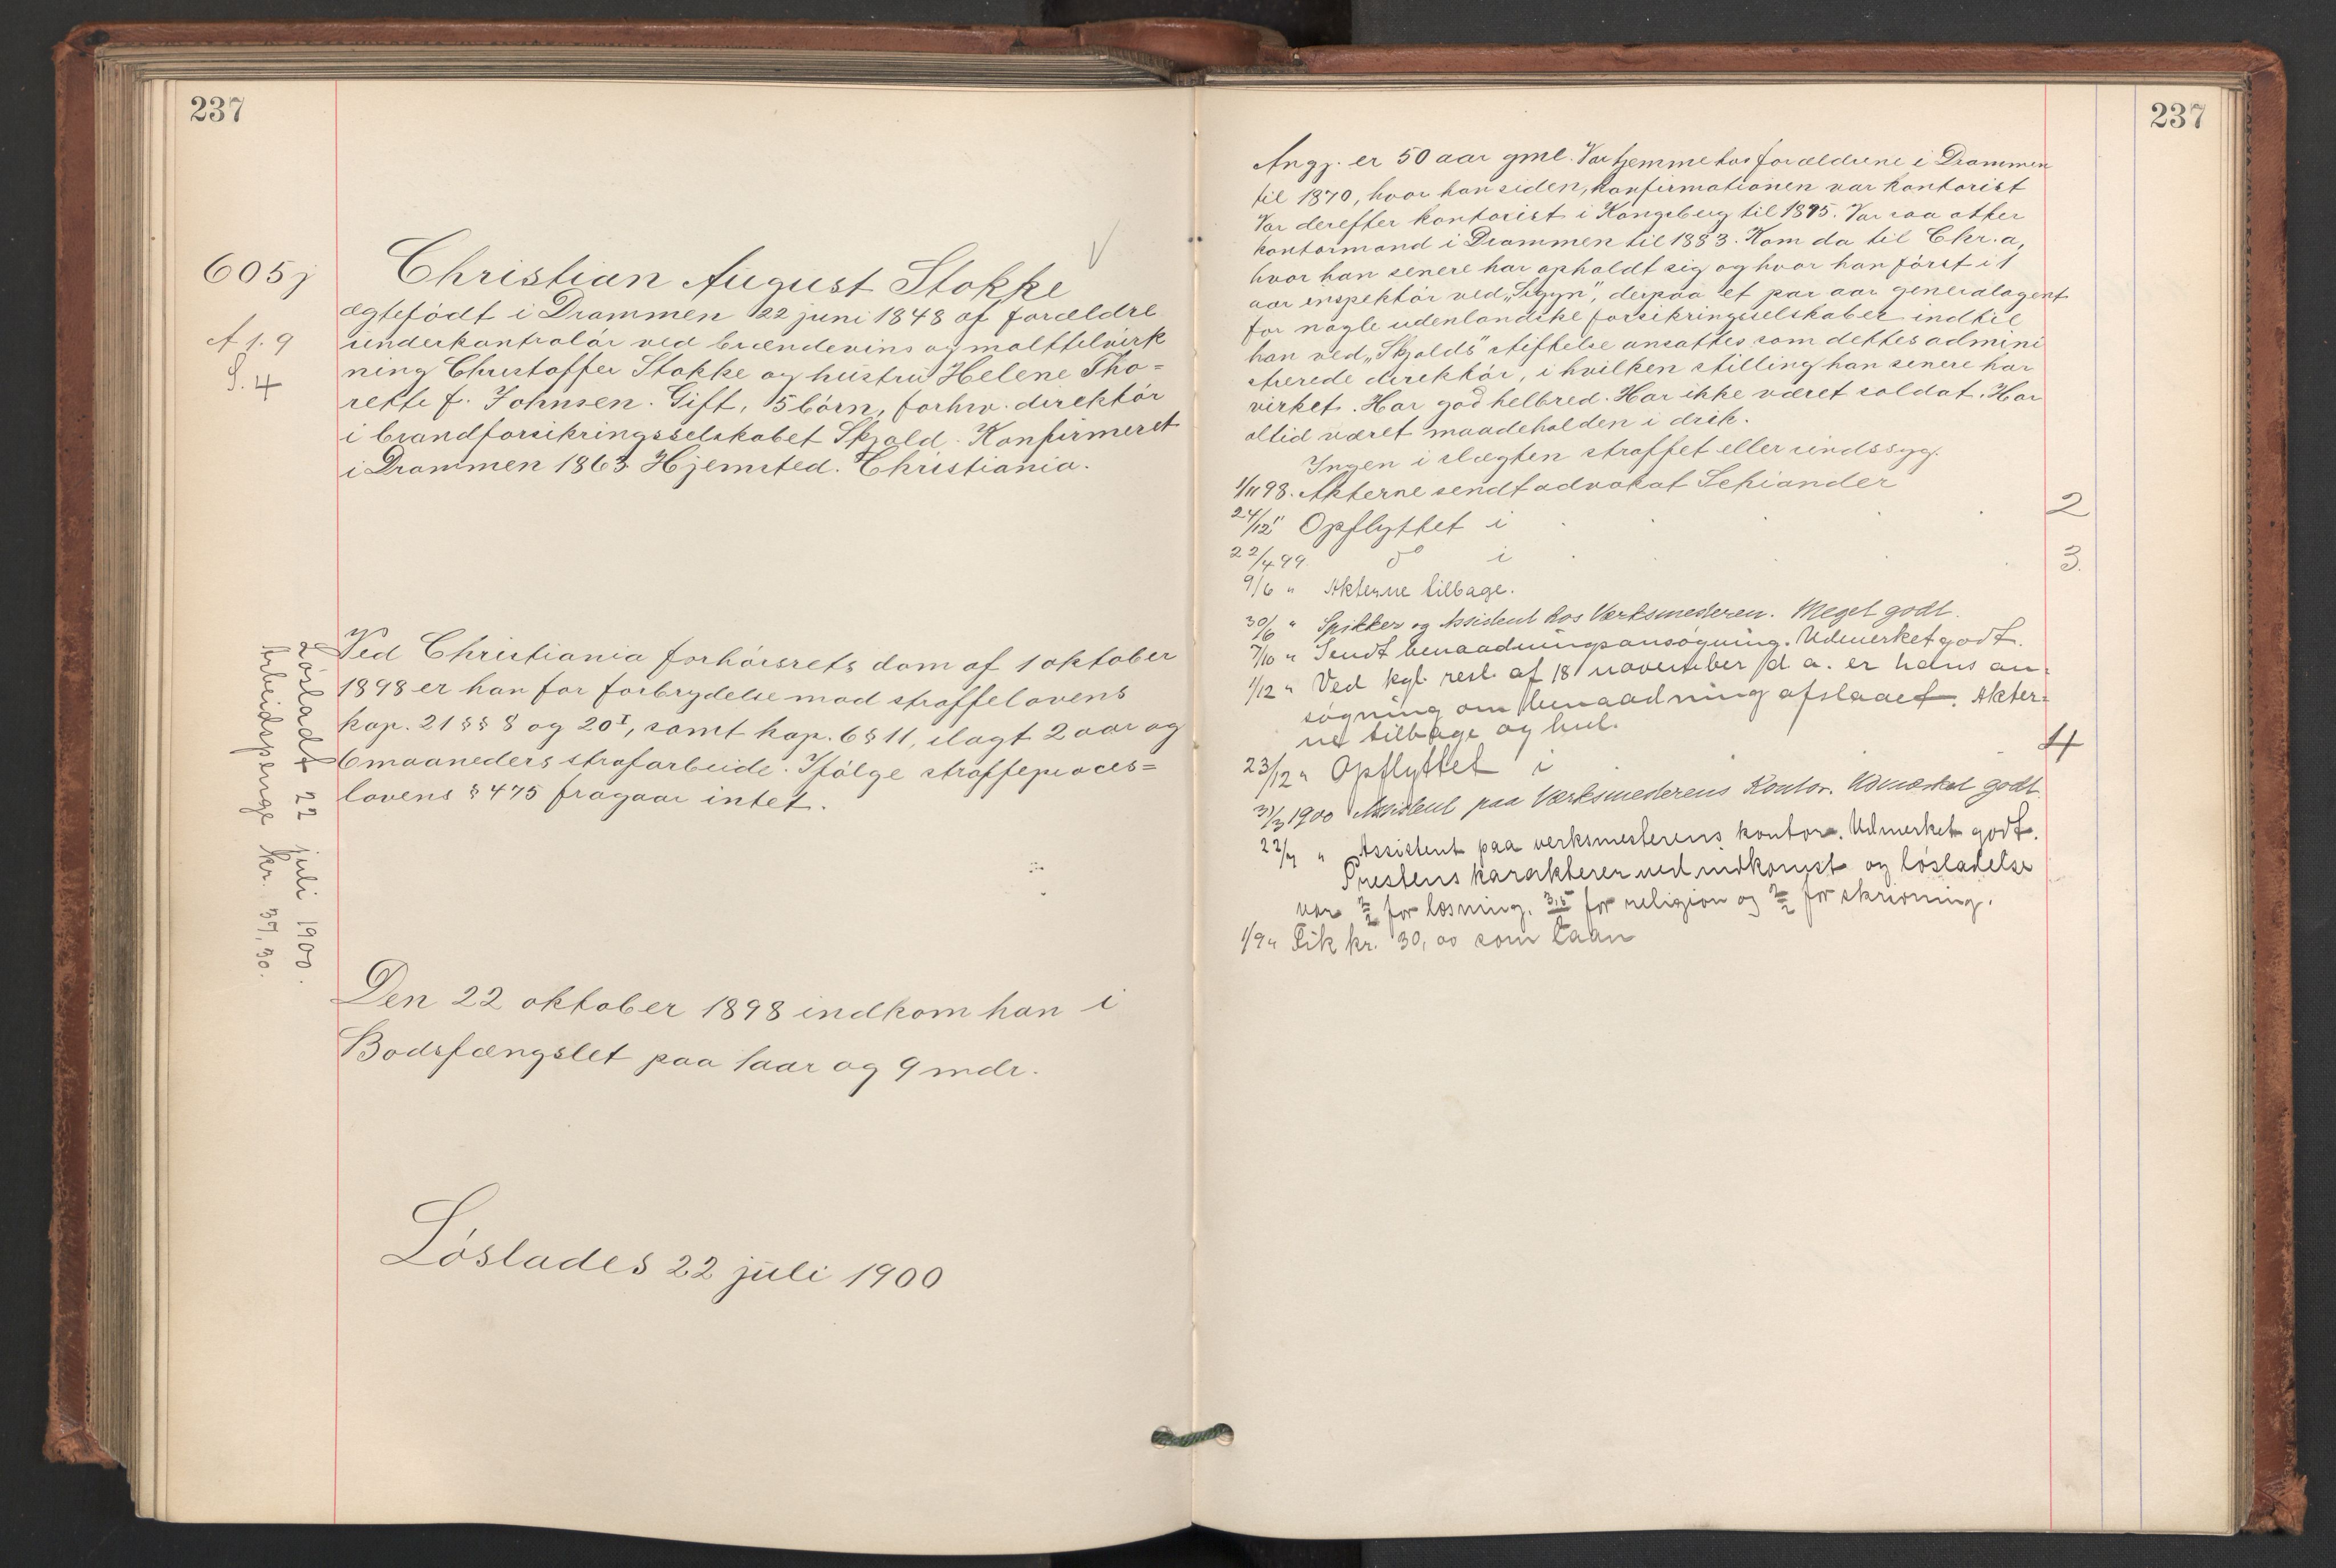 237
605j
A 1. 9
S. 4
Christian August Stokke
ægtefödt i Drammen 22 juni 1848 af forældre
underkontrolör ved brændevins og malttilvirk
ning Christoffer Stokke og hustru Helene Tho=
rette f. Johnsen. Gift, 5 börn, forhv. direktör
i brandforsikringsselskabet Skjold. Konfirmeret
i Drammen 1863. Hjemsted. Christiania.
Ved Christiania forhörsrets dom af 1 oktober
1898 er han for forbrydelse mod straffelovens
kap. 21 §§ 8 og 20 I, samt kap. 6 § 11, ilagt 2 aar og
6 maaneders strafarbeide. Ifölge straffeproces=
lovens § 475 fragaar intet.
Löslades 22 juli 1900.
Arbeidspenge kr. 37,30.
Den 22 oktober 1898 indkom han i
Bodsfængslet paa 1 aar og 9 mdr.
Löslades 22 juli 1900
237
Angj. er 50 aar gml. Var hjemme hos forældrene i Drammen
til 1870, hvor han siden konfirmationen var kontorist
Var derefter kontorist i Kongsberg til 1875. Var saa atter
kontormand i Drammen til 1883. Kom da til Chr.a,
hvor han senere har opholdt sig og hvor han först i 1
aar inspektör ved "Sigyn", derpaa et par aar generalagent
for nogle udenlandske forsikringsselskaber indtil
han ved "Skjolds" stiftelse ansattes som dettes admini
strerede direktör, i hvilken stilling han senere har
virket. Har god helbred. Har ikke været soldat. Har
altid været maadeholden i drik.
Ingen i slægten straffet eller sindssyg.
1/11 98. Akterne sendt advokat Schiander
24/12 " Opflyttet i 2
22/4 99 do i 3.
9/6 " Akterne tilbage.
30/6 " Spikker og Assistent hos Værksmesteren. Meget godt.
7/10 " Sendt benaadningsansøgning. Udmerket godt.
1/12 " Ved kgl. resl. af 18 november d. a. er hans an-
søgning om benaadning afslaaet. Akter-
ne tilbage og hul.
23/12 " Opflyttet i 4
31/3 1900 Assistent paa Værksmesterens Kontor. Udmærket godt.
22/7 " Assistent paa verksmesterens kontor. Udmerket godt.
Prestens karakterer ved indkomst og løsladelse
var 2/2 for læsning, 3,5/2 for religion og 2/2 for skrivning.
1/9 " Fik kr. 30,00 som laan